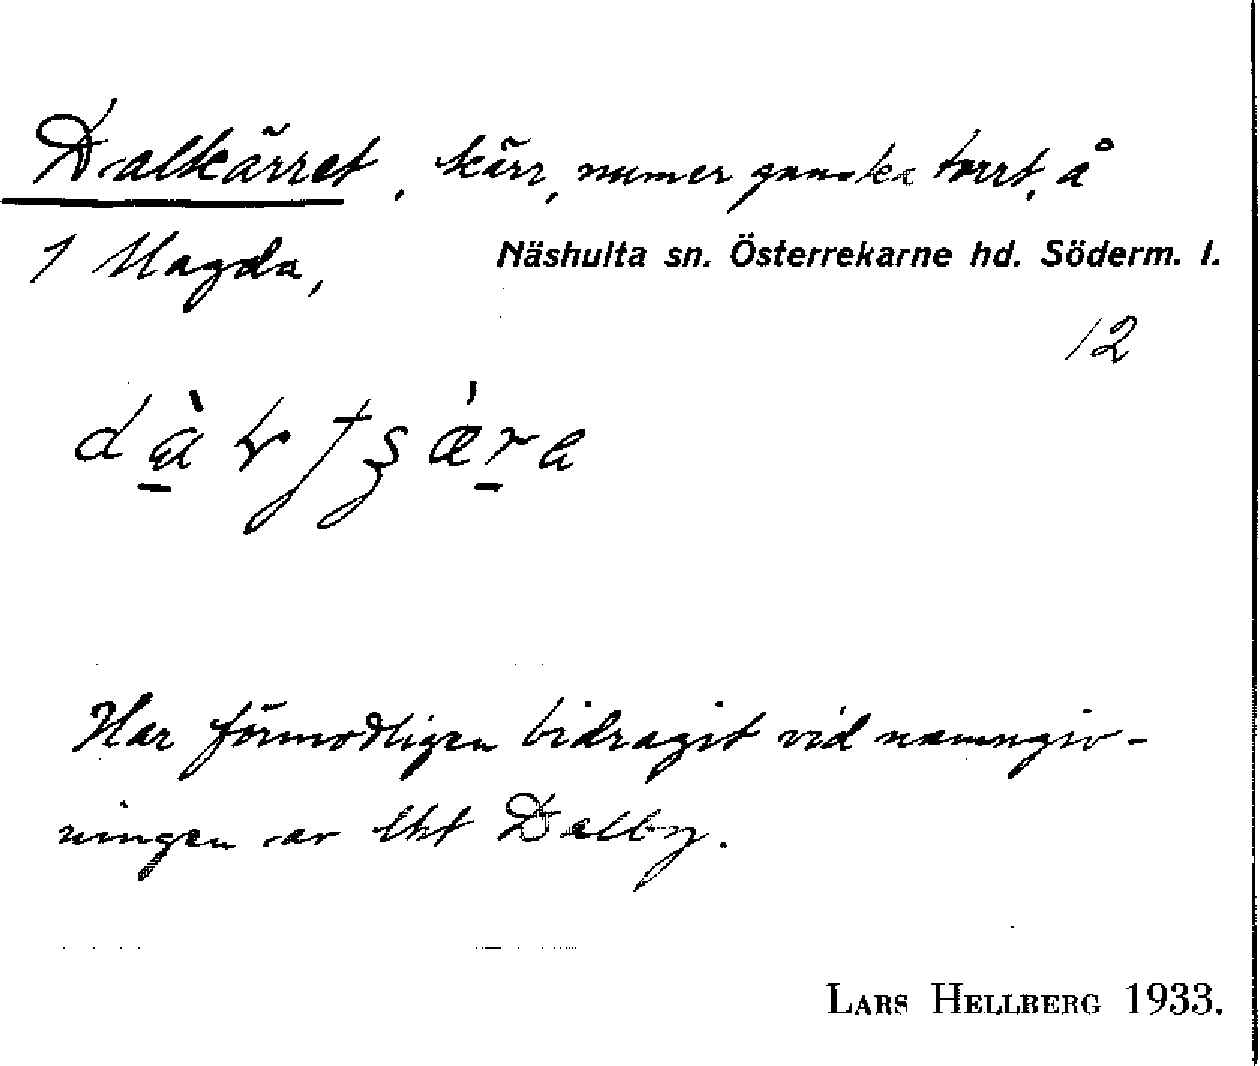 Dalkärret, kärr, numer ganska torrt, å
1 Magda,
Näshulta sn. Österrekarne hd. Söderm. l.
12
Har förmodligen bidragit vid namngiv-
ningen av lht Dalby.
LARS HELLBERG 1933.